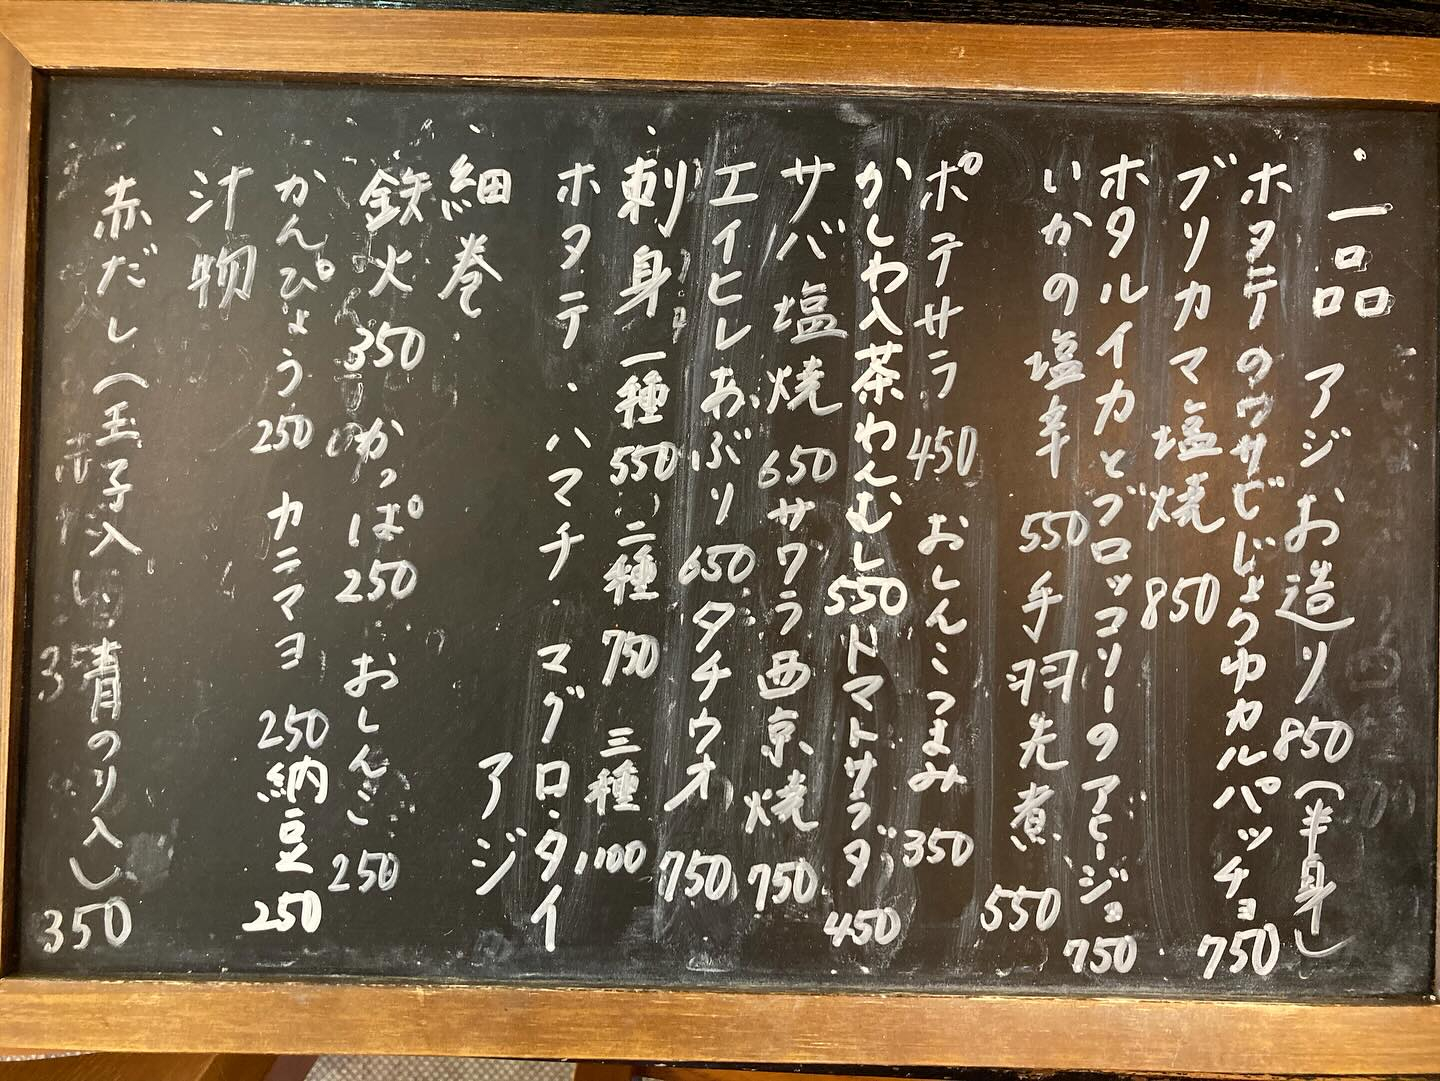 ・一品
アジお造り850(半身)
ホタテのワサビじょうゆカルパッチョ750
ブリカマ塩焼 850
ホタルイカとブロッコリーのアヒージョ750
いかの塩辛 550 手羽先煮 550
ポテサラ 450 おしんこつまみ 350
かしわ入茶わんむし550 トマトサラダ 450
サバ塩焼 650 サワラ西京焼 750
エイヒレあぶり 650 タチウオ 750
・刺身 一種550 二種750 三種1,100
ホタテ・ハマチ・マグロ・タイ
アジ
・細巻
鉄火350 かっぱ250 おしんこ250
かんぴょう250 カニマヨ250 納豆250
・汁物
赤だし(玉子入 青のり入)350